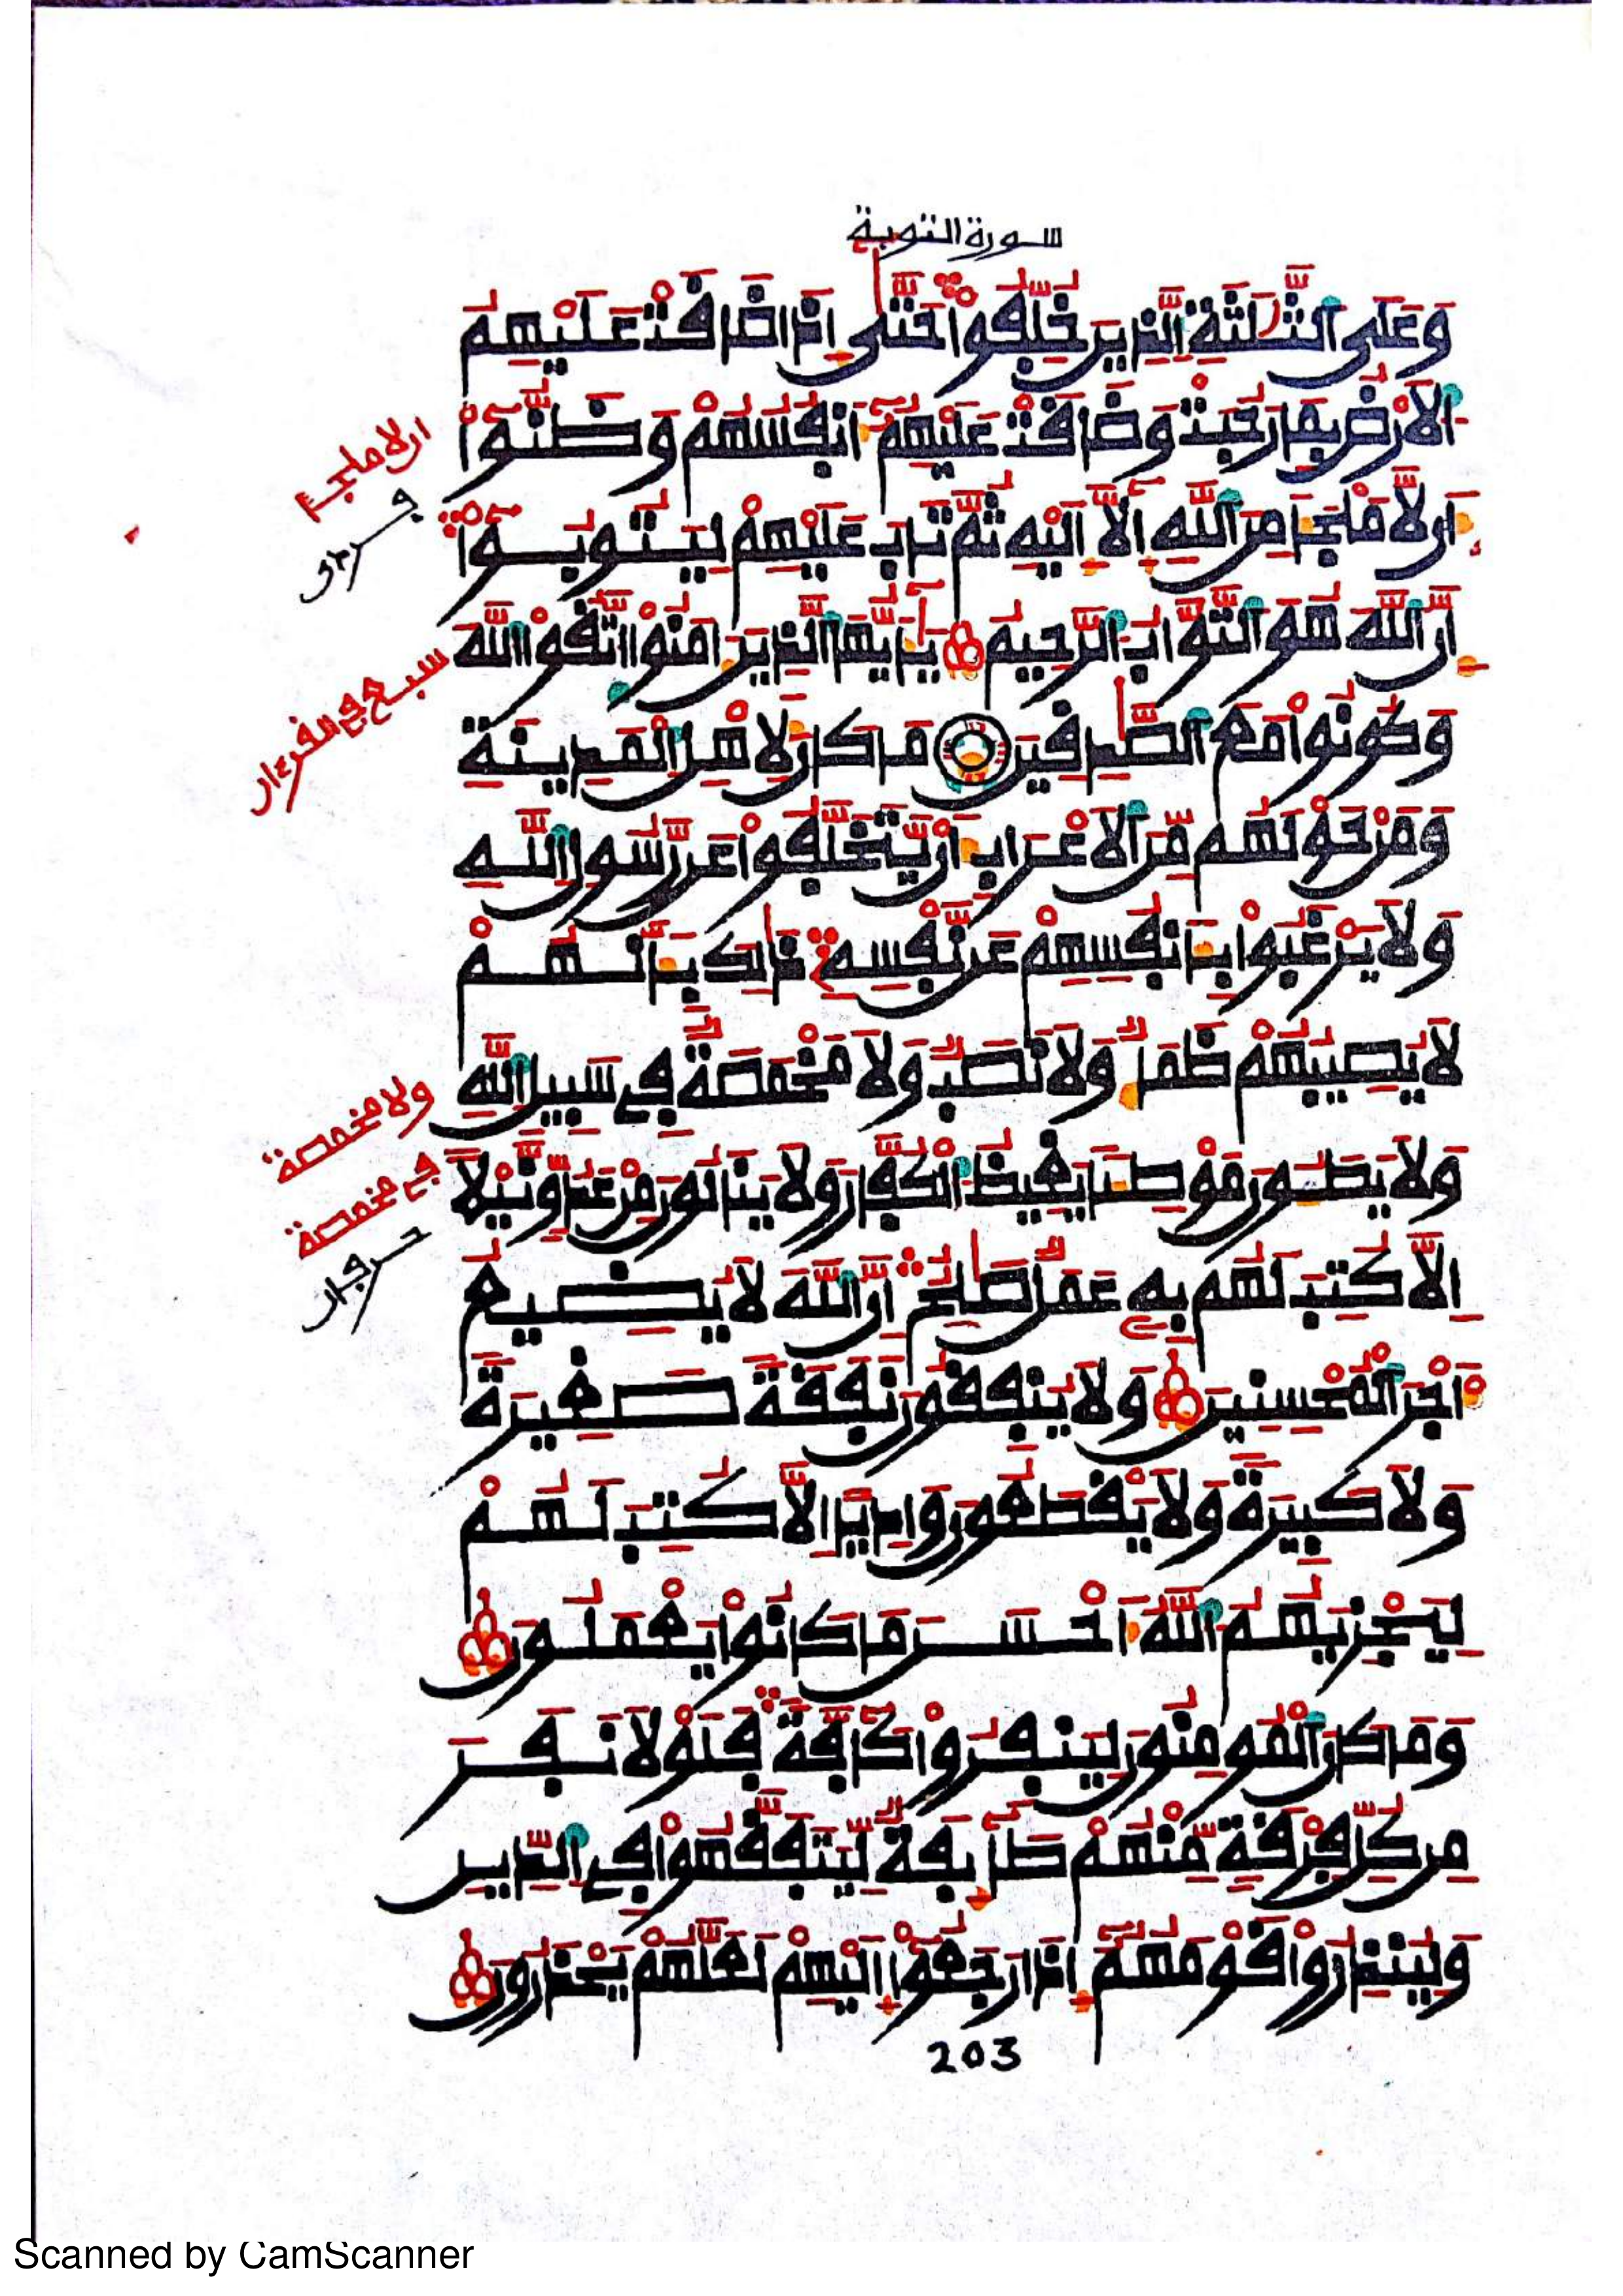 سورة التوبة
وَعَلَى اَلثَّلَٰثَةِ اِلذِينَ خُلِّفُواْ حَتَّىٰ إِذَا ضَافَتْ عَلَيْهِمُ
اُلَارْضُ بِمَا رَحُبَتْ وَضَافَتْ عَلَيْهِمُۥٓ أَنفُسُهُمْ وَظَنُّوٓاْ
أَن لَّا مَلْجَأَ مِنَ اَللَّهِ إِلَّآ إِلَيْهِ ثُمَّ تَابَ عَلَيْهِمْ لِيَتُوبُوٓاْ
إِنَّ اَللَّهَ هُوَ اَلتَّوَّابُ اُلرَّحِيمُ يَٰٓأَيُّهَا اَلذِينَ ءَامَنُواْ اُتَّقُواْ اُللَّهَ
وَكُونُواْ مَعَ اَلصَّٰدِقِينَ مَا كَانَ لِأَهْلِ اِلْمَدِينَةِ
وَمَنْ حَوْلَهُم مِّنَ اَلَاعْرَابِ أَنْ يَّتَخَلَّفُواْ عَن رَّسُولِ اِللَّهِ
وَلَا يَرْغَبُواْ بِأَنفُسِهِمْ عَن نَّفْسِهِۦ ذَٰلِكَ بِأَنَّهُمْ
لَا يُصِيبُهُمْ ظَمَأٌ وَلَا نَصَبٌ وَلَا مَخْمَصَةٌ فِى سَبِيلِ اِللَّهِ
وَلَا يَطَـُٔونَ مَوْطِئاً يَغِيظُ اُلْكُفَّارَ وَلَا يَنَالُونَ مِنْ عَدُوٍّ نَّيْلاً
اِلَّا كُتِبَ لَهُم بِهِۦ عَمَلٌ صَٰلِحٌ اِنَّ اَللَّهَ لَا يُضِيعُ
أَجْرَ اَلْمُحْسِنِينَ وَلَا يُنفِقُونَ نَفَقَةً صَغِيرَةً
وَلَا كَبِيرَةً وَلَا يَقْطَعُونَ وَادِياً اِلَّا كُتِبَ لَهُمْ
لِيَجْزِيَهُمُ اُللَّهُ أَحْسَنَ مَا كَانُواْ يَعْمَلُونَ
وَمَا كَانَ اَلْمُومِنُونَ لِيَنفِرُواْ كَآفَّةً فَلَوْلَا نَفَرَ
مِن كُلِّ فِرْقَةٍ مِّنْهُمْ طَآئِفَةٌ لِّيَتَفَقَّهُواْ فِى اِلدِّينِ
وَلِيُنذِرُواْ قَوْمَهُمُۥٓ إِذَا رَجَعُوٓاْ إِلَيْهِمْ لَعَلَّهُمْ يَحْذَرُونَ
203
ان لا ملجأ
ولا مخمصة
فى مخمصة
Scanned by CamScanner